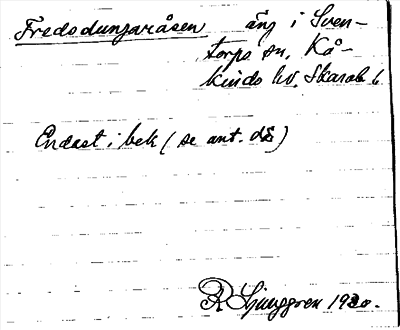 Fredsdungaråsen äng i Sven-
torps sn, Kå-
kinds hd. Skarab. l.
Endast i bek (se ant. d.)
R Ljunggren 1920.